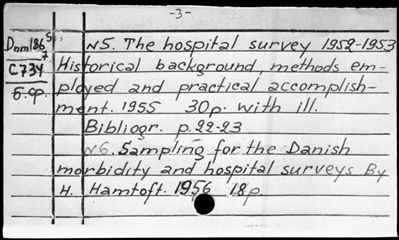 -3-
Dnm186 Sp,
N5. The hospital survey 1952-1953
C734
Historical background, methods em-
ployed and practical accomplish-
ment. 1955 30p. with ill.
Bibliogr. p.22-23
N6. Sampling for the Danish
morbidity and hospital surveys By
H. Hamtoft. 1956 18p